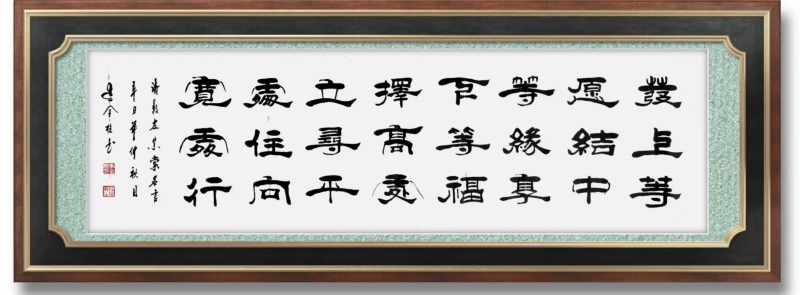 發上等
愿結中
等緣享
下等福
擇高處
立尋平
處住向
寬處行
清朝左宗棠名言
辛丑年仲秋月